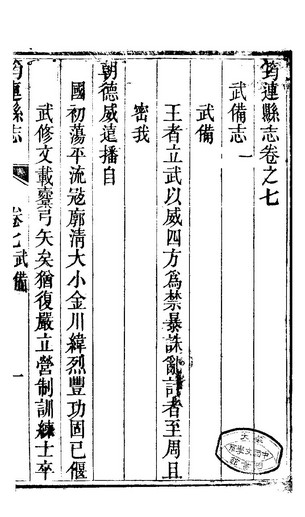 筠連縣志卷之七
武備志一
武備
王者立武以威四方為禁暴誅亂計者至周且
密我
朝德威遠播自
國初蕩平流冦廓清大小金川緯烈豐功固已偃
武修文載櫜弓矢矣猶復嚴立營制訓練士卒
筠連縣志
卷七武備
一